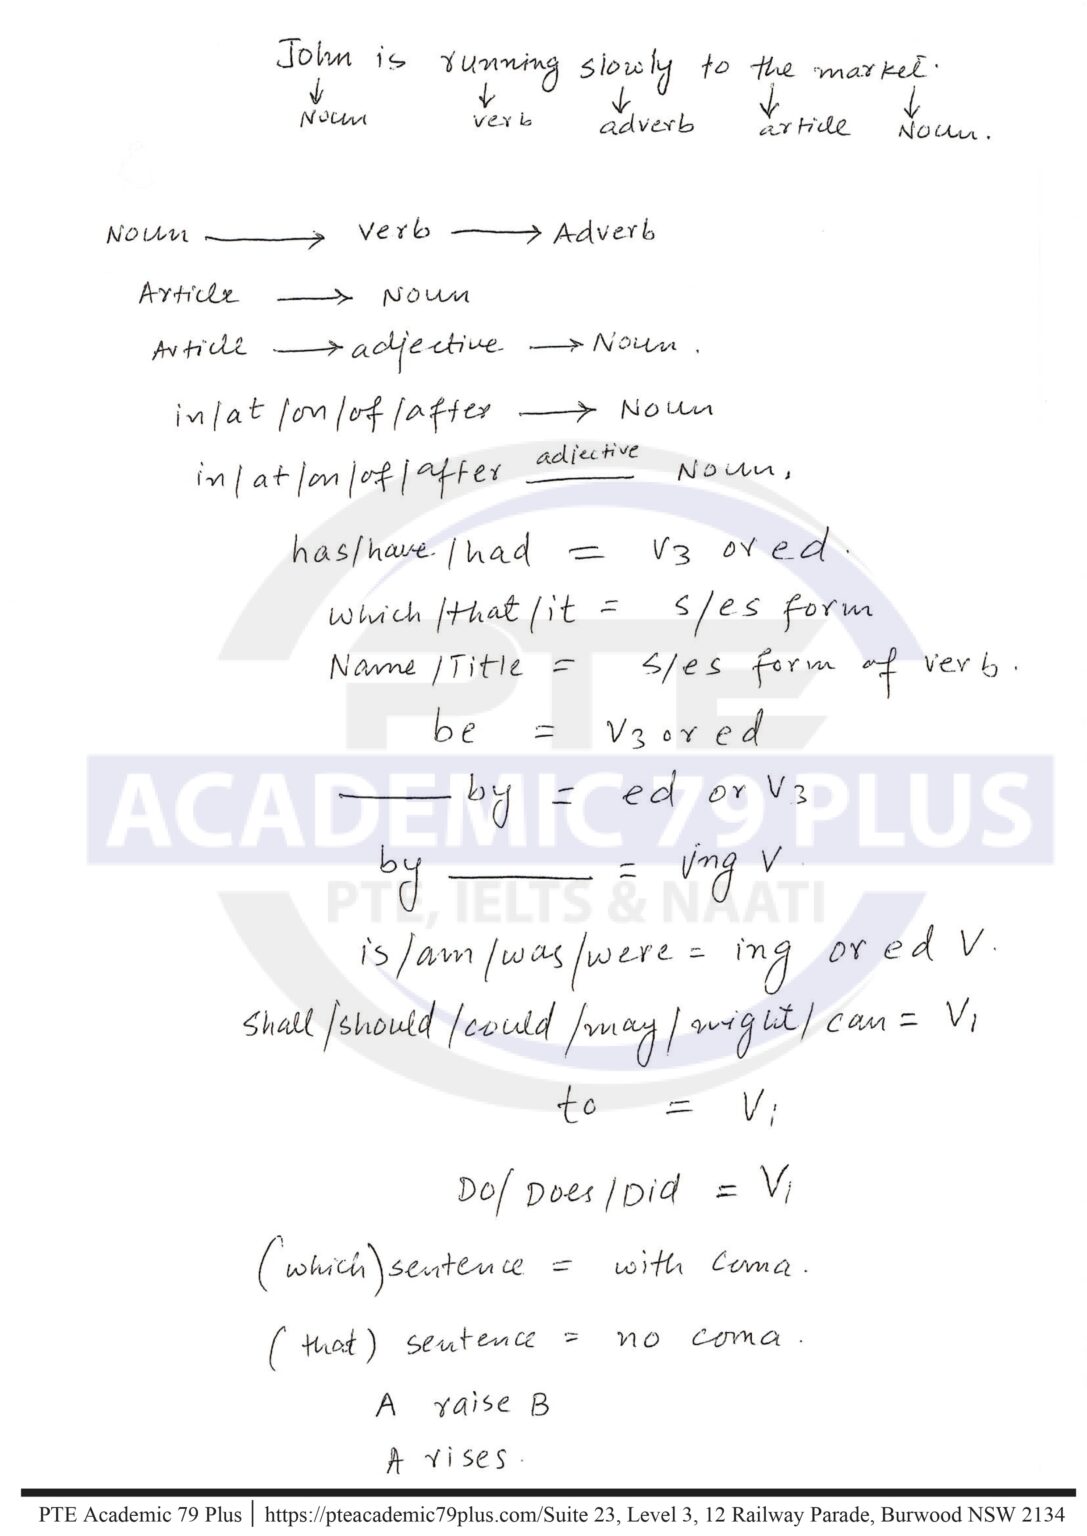 John is running slowly to the market.
↓ ↓ ↓ ↓ ↓
Noun verb adverb article Noun.
Noun → Verb → Adverb
Article → Noun
Article → adjective → Noun.
in/at/on/of/after → Noun
in/at/on/of/after adjective Noun.
has/have/had = V3 or ed.
which/that/it = s/es form
Name/Title = s/es form of verb.
be = V3 or ed
____ by = ed or V3
by ____ = ing V
is/am/was/were = ing or ed V.
shall/should/could/may/might/can = V1
to = V1
Do/Does/Did = V1
(which) sentence = with coma.
(that) sentence = no coma.
A raise B
A rises.
PTE
ACADEMIC 79 PLUS
PTE, IELTS & NAATI
PTE Academic 79 Plus | https://pteacademic79plus.com/Suite 23, Level 3, 12 Railway Parade, Burwood NSW 2134